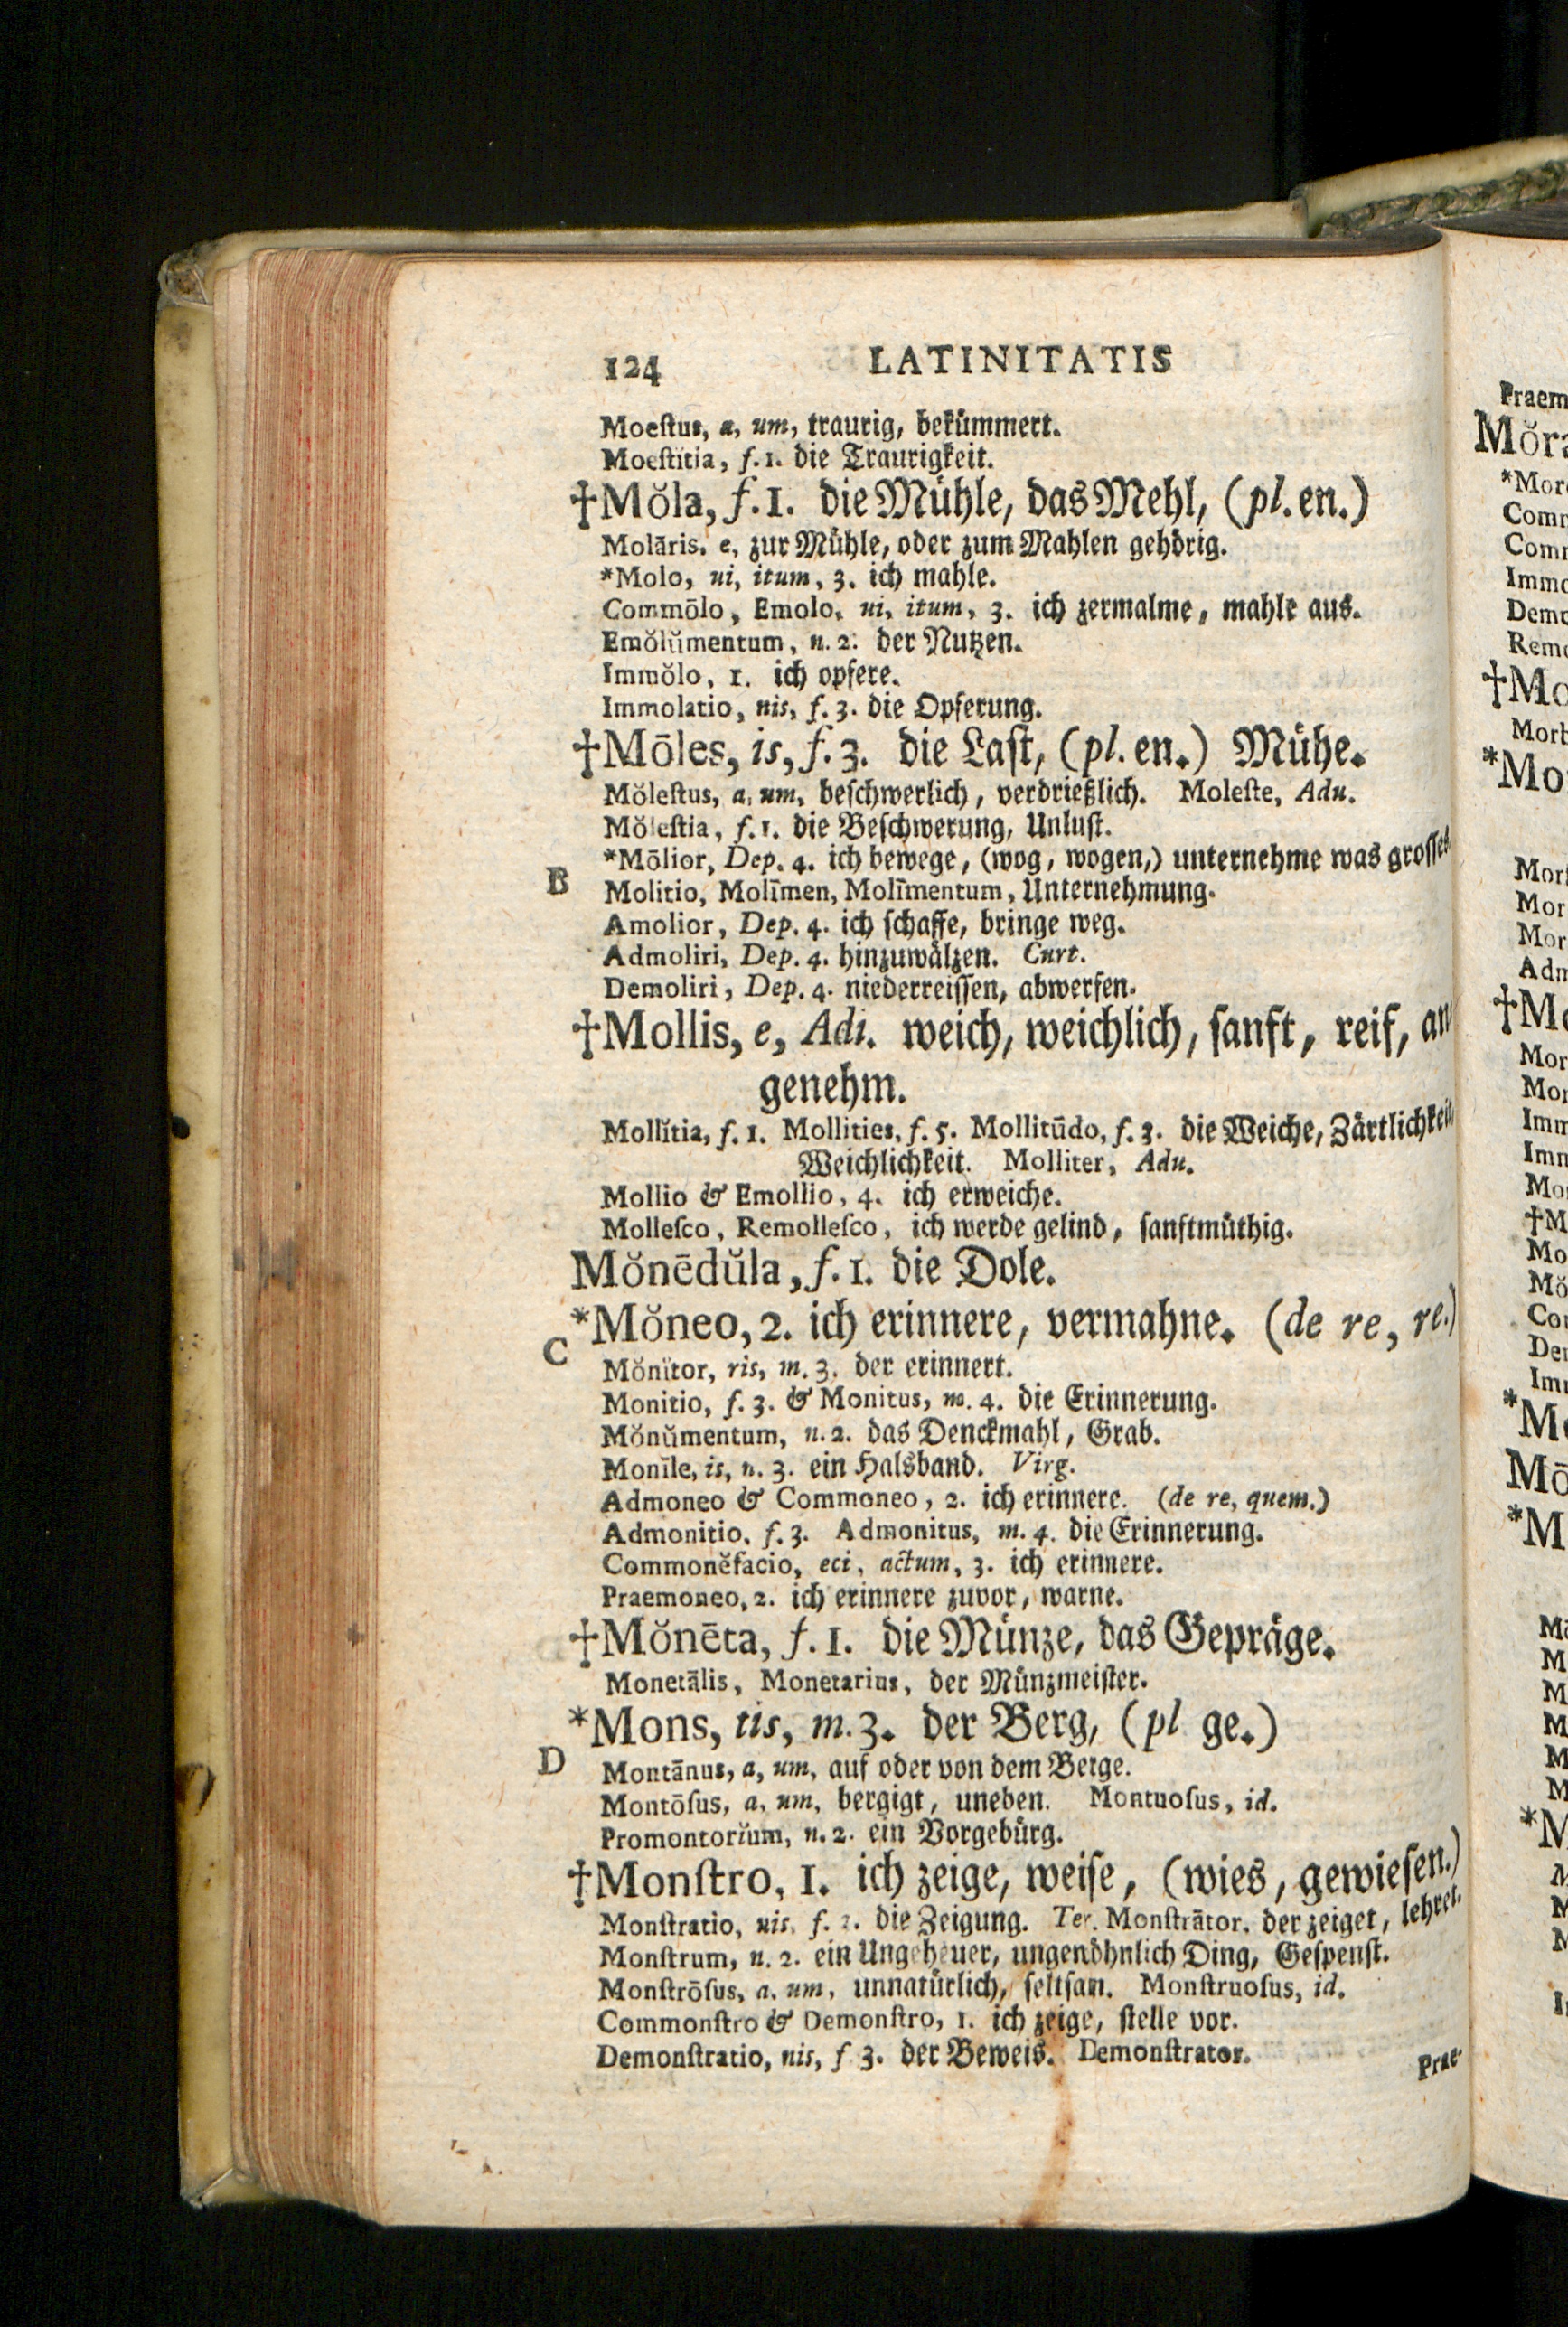 124 LATINITATIS
Moeſtus, a, um, traurig, bekümmert.
Moeſtitia, f. 1. die Traurigkeit.
†Mŏla, f. 1. die Mühle, das Mehl, (pl. en.)
Molāris, e, zur Mühle, oder zum Mahlen gehörig.
*Molo, ui, itum, 3. ich mahle.
Commŏlo, Emolo, ui, itum, 3. ich zermalme, mahle aus.
Emŏlŭmentum, n. 2. der Nutzen.
Immŏlo, 1. ich opfere.
Immolatio, nis, f. 3. die Opferung.
†Mōles, is, f. 3. die Laſt, (pl. en.) Mühe.
Mŏleſtus, a, um, beſchwerlich, verdrießlich. Moleſte, Adu.
Mŏleſtia, f. 1. die Beſchwerung, Unluſt.
*Mōlior, Dep. 4. ich bewege, (wog, wogen,) unternehme was groſſes
B
Molitio, Molīmen, Molīmentum, Unternehmung.
Amolior, Dep. 4. ich ſchaffe, bringe weg.
Admoliri, Dep. 4. hinzuwälzen. Curt.
Demoliri, Dep. 4. niederreiſſen, abwerfen.
†Mollis, e, Adi. weich, weichlich, ſanft, reif, an
genehm.
Mollĭtia, f. 1. Mollities, f. 5. Mollitūdo, f. 3. die Weiche, Zärtlichkeit
Weichlichkeit. Molliter, Adu.
Mollio & Emollio, 4. ich erweiche.
Molleſco, Remolleſco, ich werde gelind, ſanftmüthig.
Mŏnēdŭla, f. 1. die Dole.
*Mŏneo, 2. ich erinnere, vermahne. (de re, re.)
C
Mŏnĭtor, ris, m. 3. der erinnert.
Monitio, f. 3. & Monitus, m. 4. die Erinnerung.
Mŏnŭmentum, n. 2. das Denckmahl, Grab.
Monīle, is, n. 3. ein Halsband. Virg.
Admoneo & Commoneo, 2. ich erinnere. (de re, quem.)
Admonitio, f. 3. Admonitus, m. 4. die Erinnerung.
Commonĕfacio, eci, actum, 3. ich erinnere.
Praemoneo, 2. ich erinnere zuvor, warne.
†Mŏnēta, f. 1. die Münze, das Gepräge.
Monetālis, Monetarius, der Münzmeiſter.
*Mons, tis, m. 3. der Berg, (pl ge.)
D
Montānus, a, um, auf oder von dem Berge.
Montōſus, a, um, bergigt, uneben. Montuoſus, id.
Promontorĭum, n. 2. ein Vorgebürg.
†Monſtro, 1. ich zeige, weiſe, (wies, gewieſen.)
Monſtratio, nis, f. die Zeigung. Ter. Monſtrātor, der zeiget, lehret.
Monſtrum, n. 2. ein Ungeheuer, ungewöhnlich Ding, Geſpenſt.
Monſtrōſus, a, um, unnatürlich, ſeltſam. Monſtruoſus, id.
Commonſtro & Demonſtro, 1. ich zeige, ſtelle vor.
Demonſtratio, nis, f 3. der Beweis. Demonſtrator.
Prae-
Praem
Mŏra
*Mor
Com
Com
Immo
Demo
Remo
†Mo
Morb
*Mo
Mor
Mor
Mor
Adm